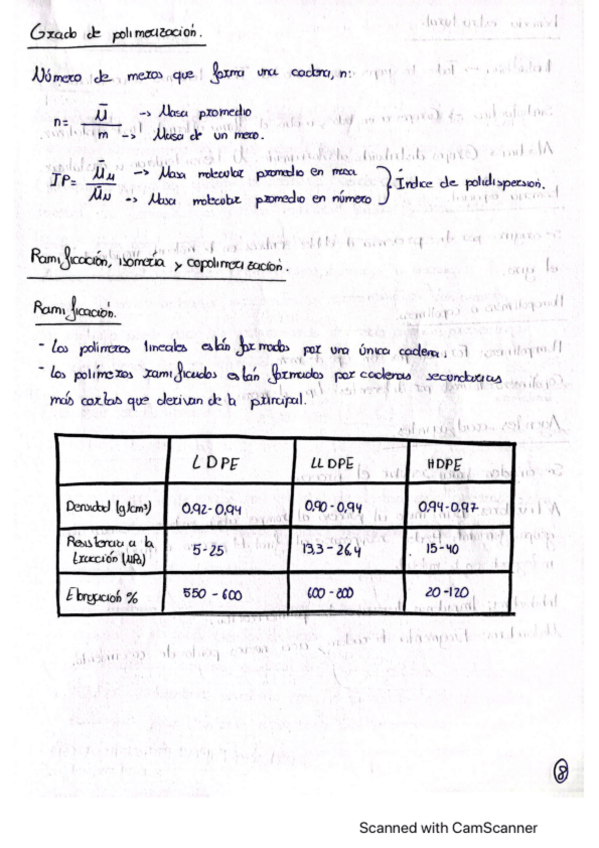 Grado de polimerización.
Número de meros que forma una cadena, n:
n= M̄ / m -> Masa promedio
-> Masa de un mero.
IP= M̄M / M̄N -> Masa molecular promedio en masa
-> Masa molecular promedio en número } Índice de polidispersión.
Ramificación, isomería y copolimerización.
Ramificación.
- Los polímeros lineales están formados por una única cadena.
- Los polímeros ramificados están formados por cadenas secundarias
más cortas que derivan de la principal.
LDPE LLDPE HDPE
Densidad (g/cm³) 0.92-0.94 0.90-0.94 0.94-0.97
Resistencia a la
tracción (MPa) 5-25 13.3-26.4 15-40
Elongación % 550-600 600-800 20-120
8
Scanned with CamScanner